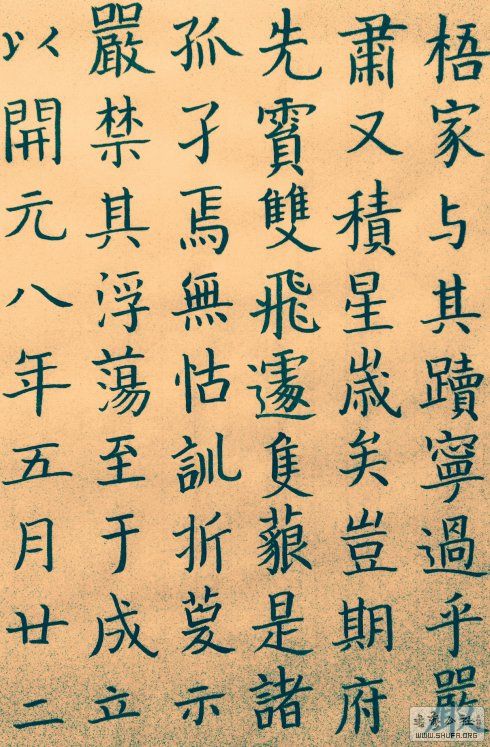 梧家与其蹟寧過乎嚴
肅又積星歲矣豈期府
先賓雙飛遽隻藐是諸
孤孑焉無怙訓折葼示
嚴禁其浮蕩至于成立
以開元八年五月廿二
WWW.SHUFA.ORG